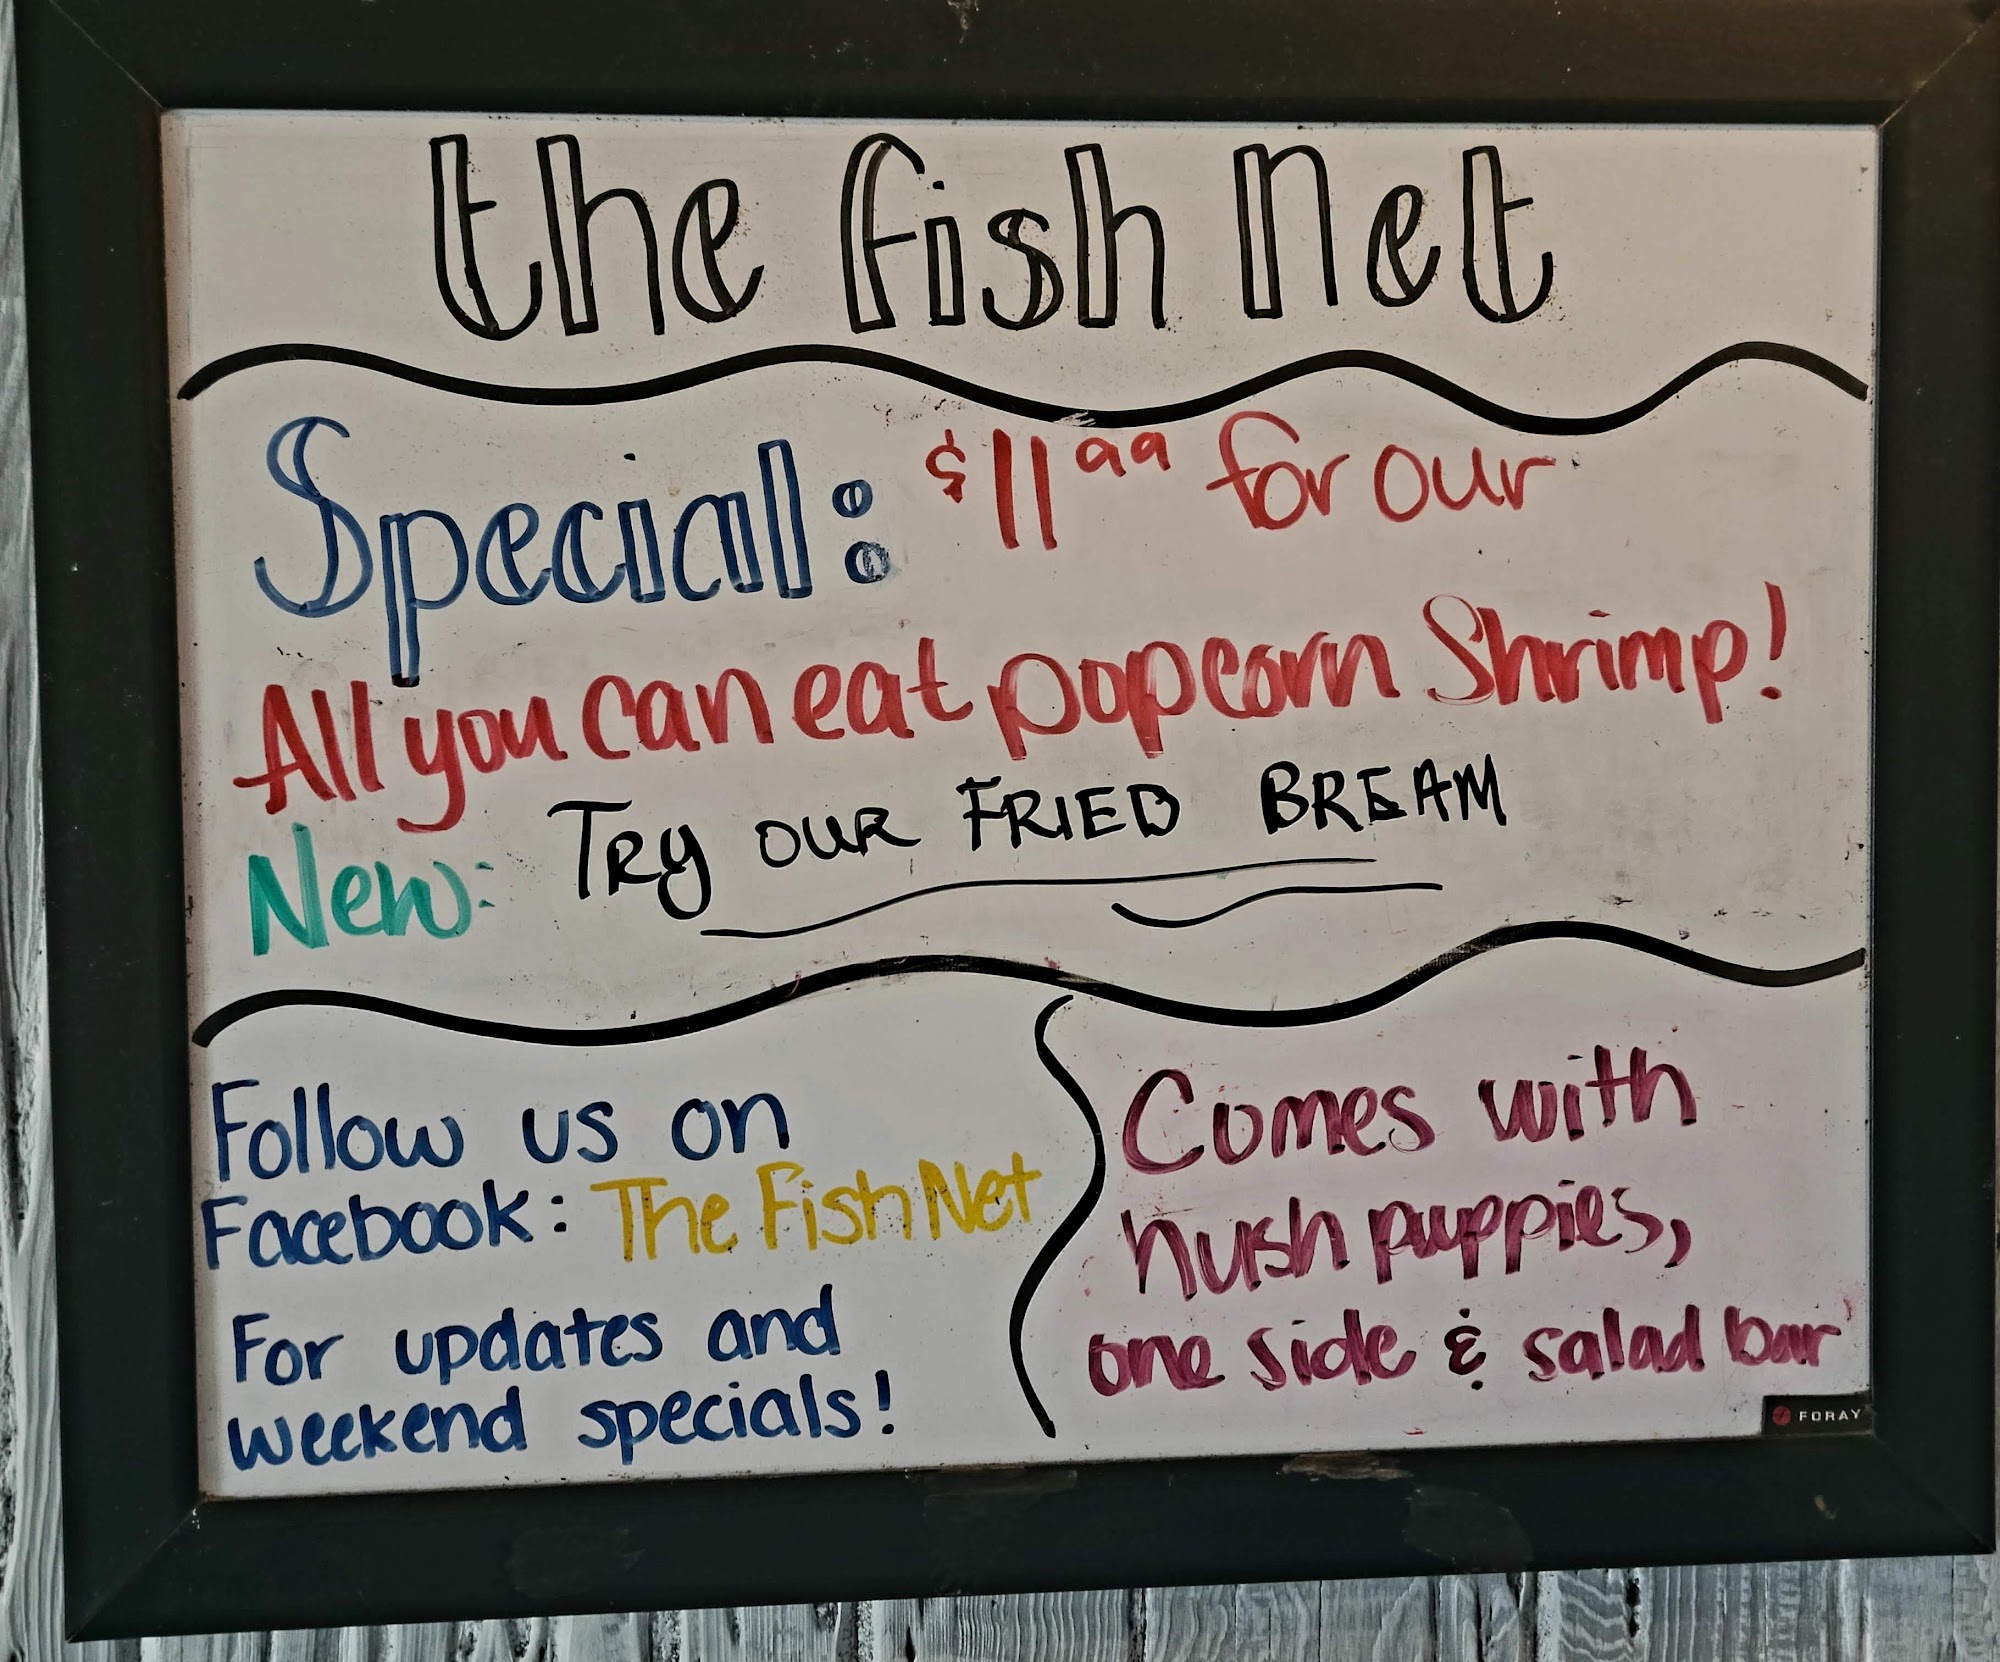 the fish net
Special: $11.99 for our
All you can eat popcorn Shrimp!
New: TRy OUR FRIED BREAM
Follow us on
Facebook: The Fish Net
For updates and
weekend specials!
Comes with
hush puppies,
one side & salad bar
FORAY